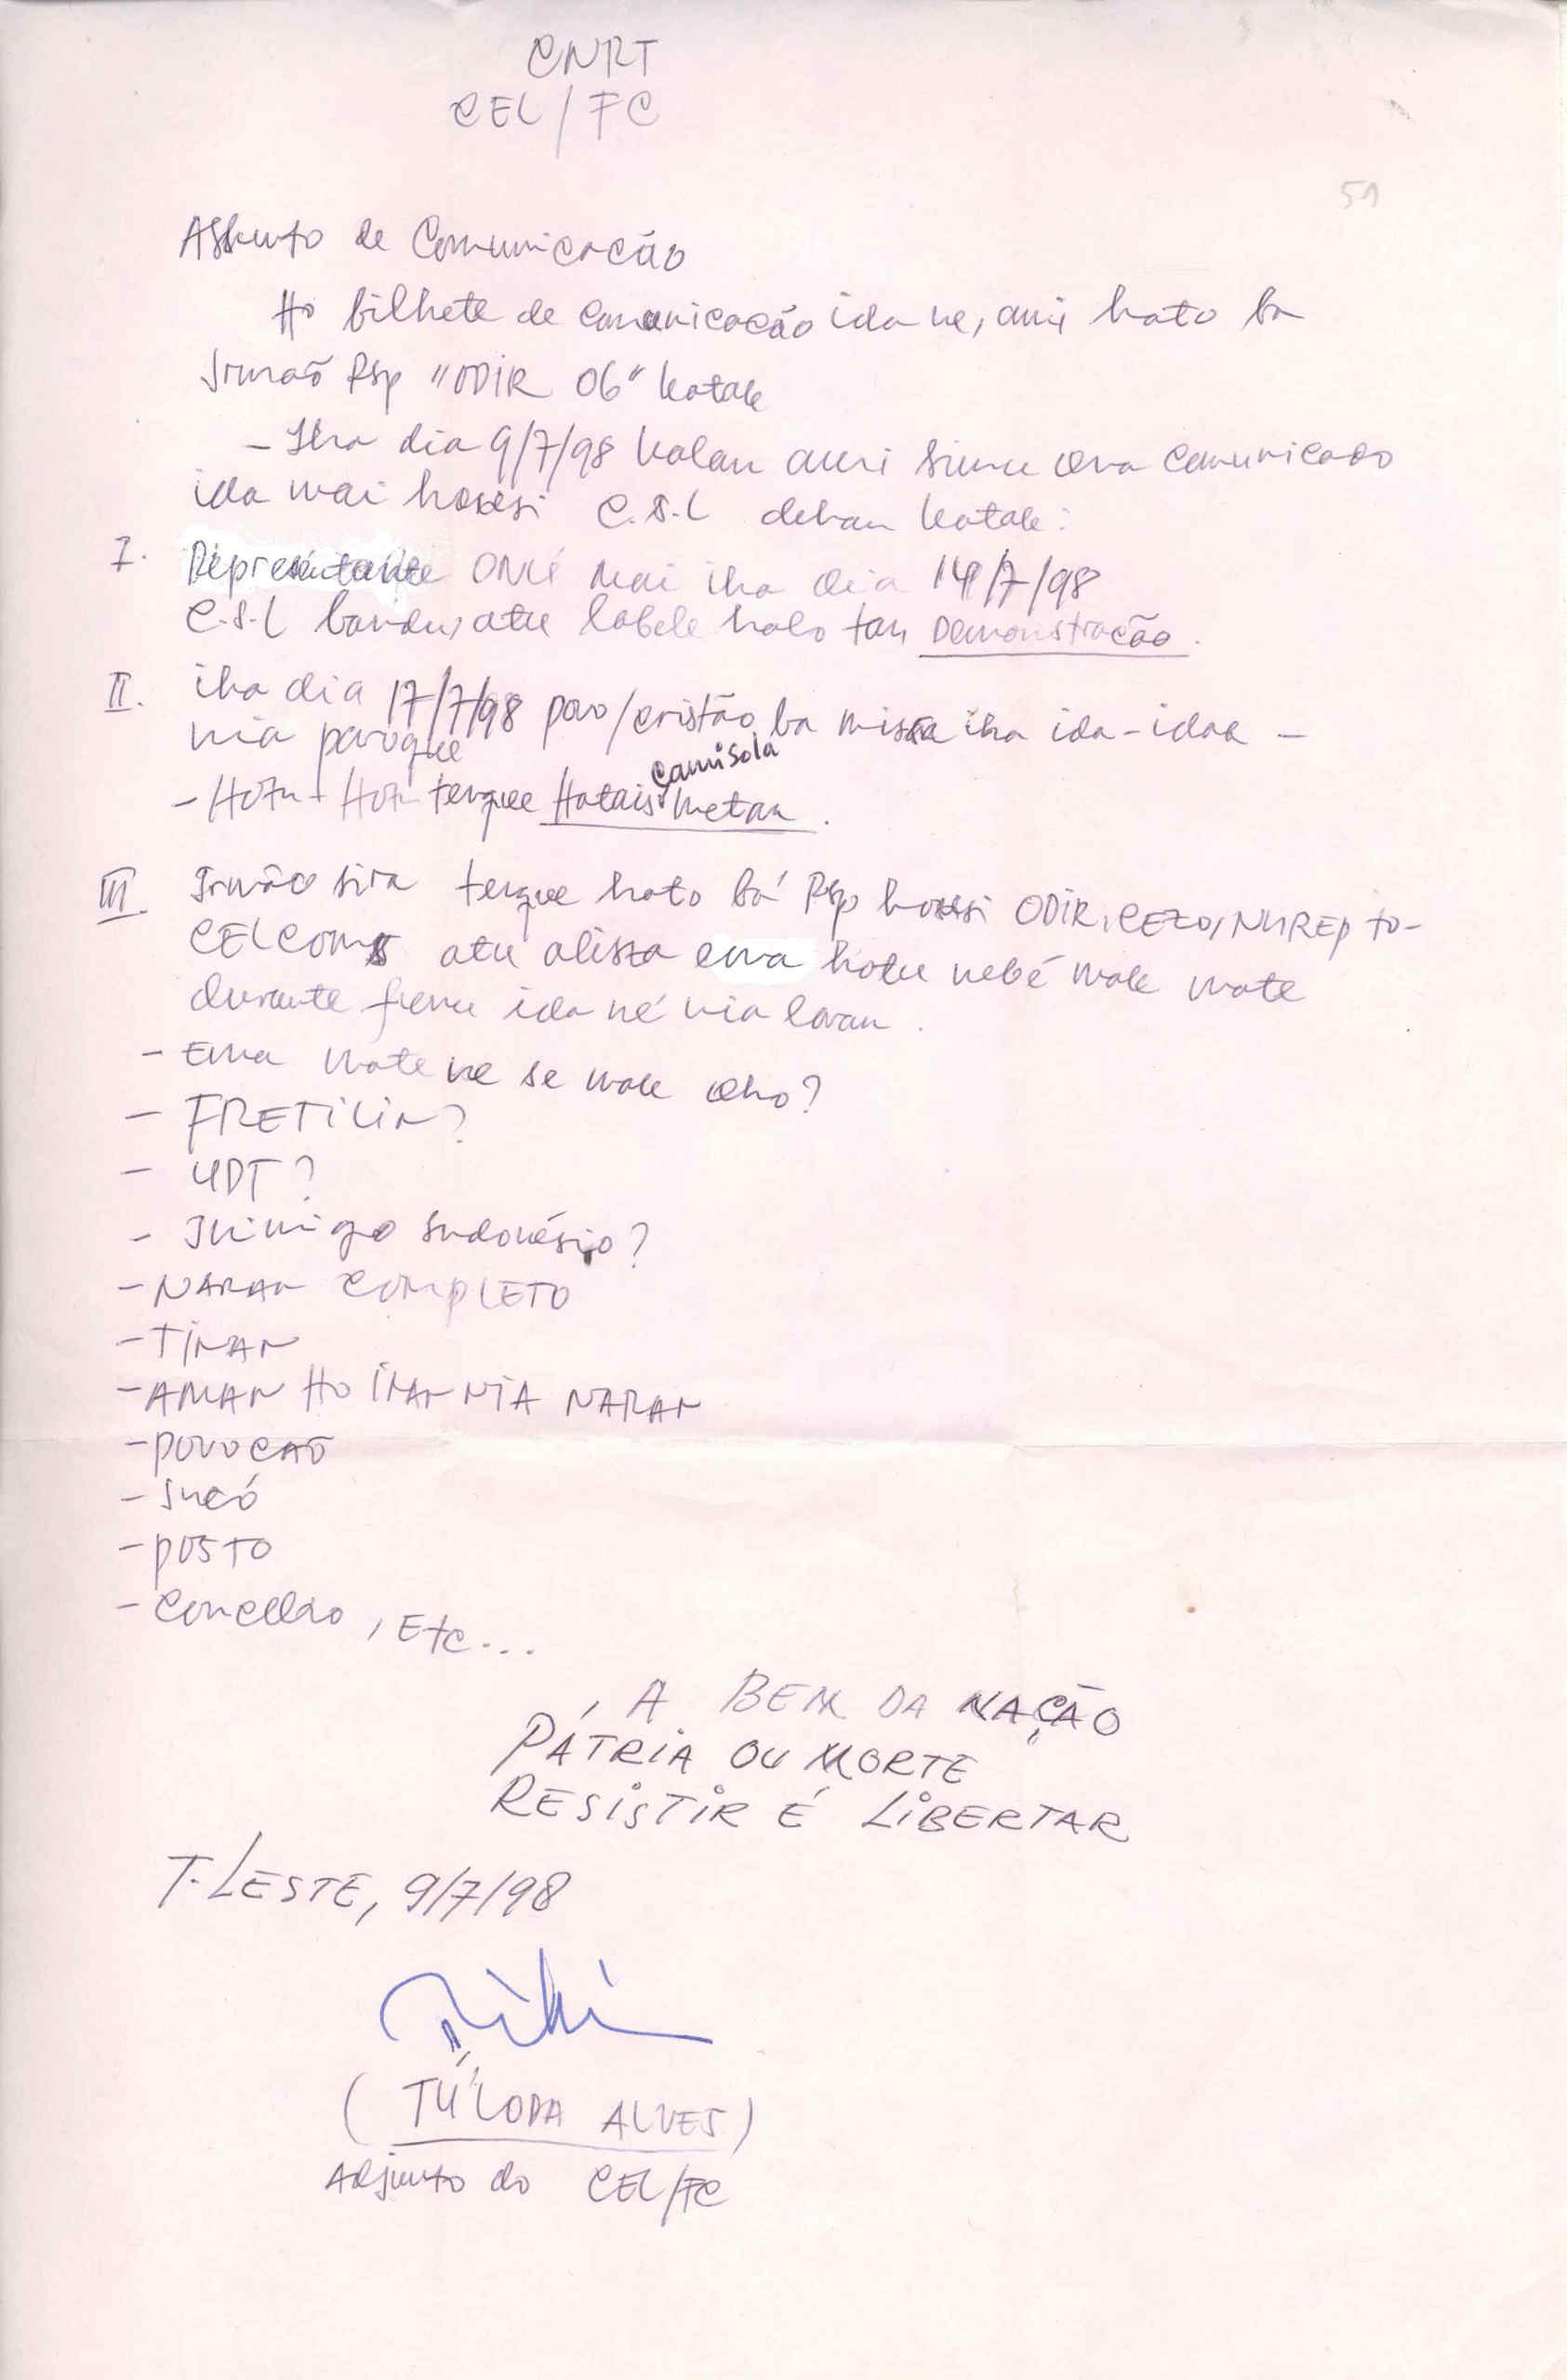 CNRT
CEL/FC
51
Assunto de Comunicacão
Ho bilhete de comunicacão ida ne, ami hato ba
Irmaõ Rsp "ODIR 06" katak
- Iha dia 9/7/98 kalan ami simu ona comunicado
ida mai hosesi C.S.L dehan katak:
I. Representante ONU mai iha dia 14/7/98
C.S.L bandu, atu labele halo tan Demonstracão.
II. iha dia 17/7/98 povo/cristão ba missa iha ida-idak -
nia paroque
camisola
- Hotu-Hotu tenque Hatais metan.
III. Irmão sira tenque hato bá Rsp hosesi ODIR, CEZO, NUREP to-
CELCOMS atu alista ema hotu nebé mak mate
durante funu ida né nia laran.
- Ema mate ne se mak oho?
- FRETILIN?
- UDT?
- Inimigo Indonésio?
- NARAN COMPLETO
- TINAN
- AMAN HO INAN NIA NARAN
- POVOCAÕ
- Sucó
- POSTO
- Concelho, Etc...
A BEM DA NAÇÃO
PÁTRIA OU MORTE
RESISTIR É LIBERTAR
T. LESTE, 9/7/98
(TÚLODA ALVES)
Adjunto do CEL/FC